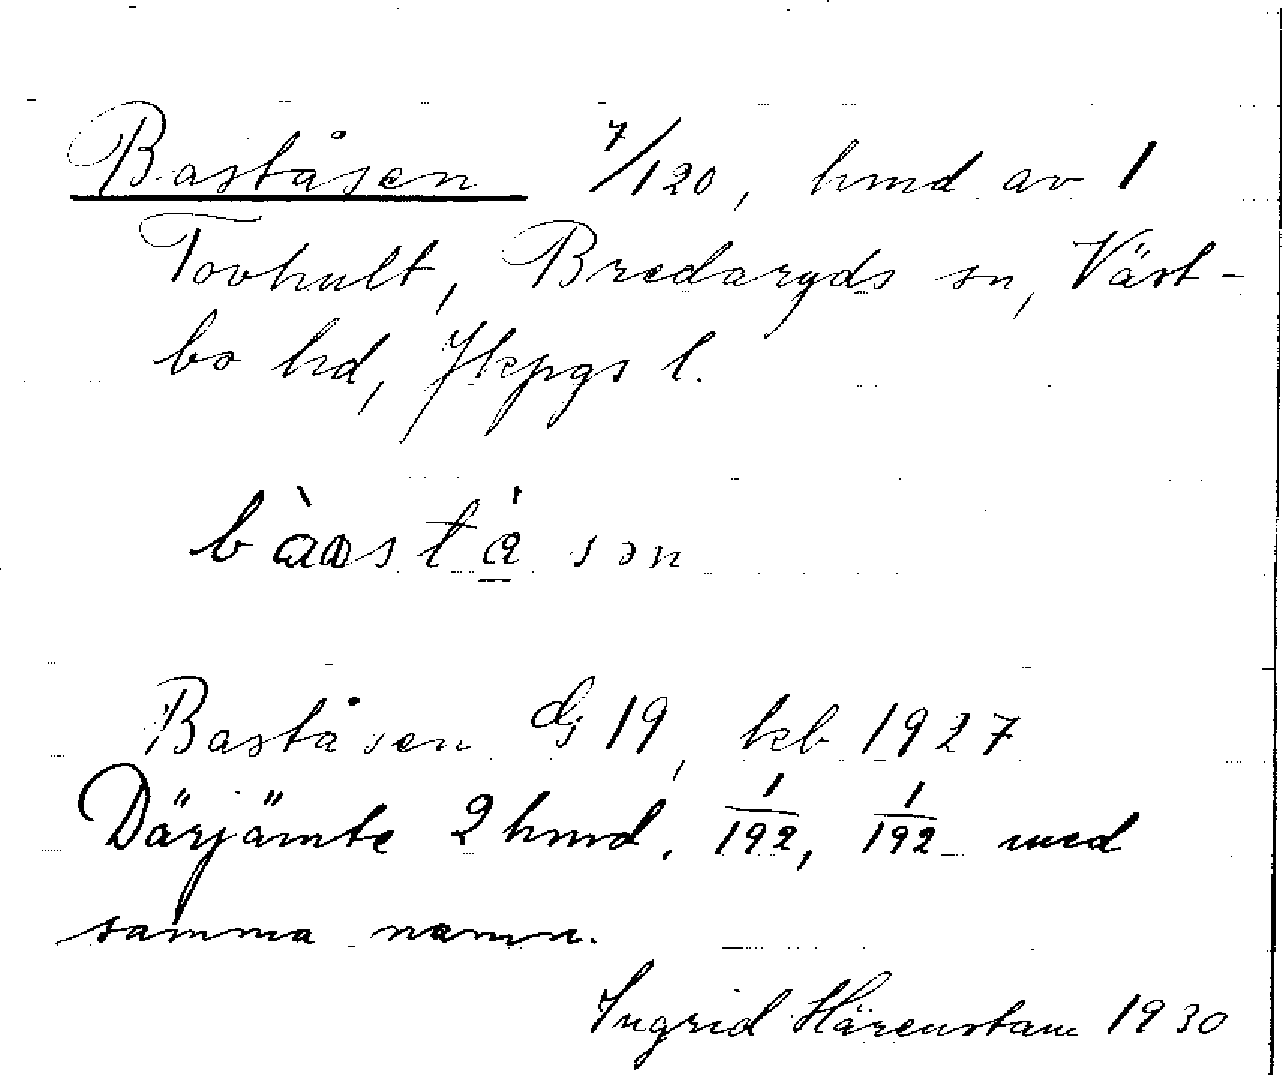 Baståsen 7/120, hmd av 1
Tovhult, Bredaryds sn, Väst-
bo hd, Jkpgs l.
Baståsen G 19, kb 1927
Därjämte 2 hmd. 1/192, 1/192 med
samma namn.
Ingrid Härenstam 1930